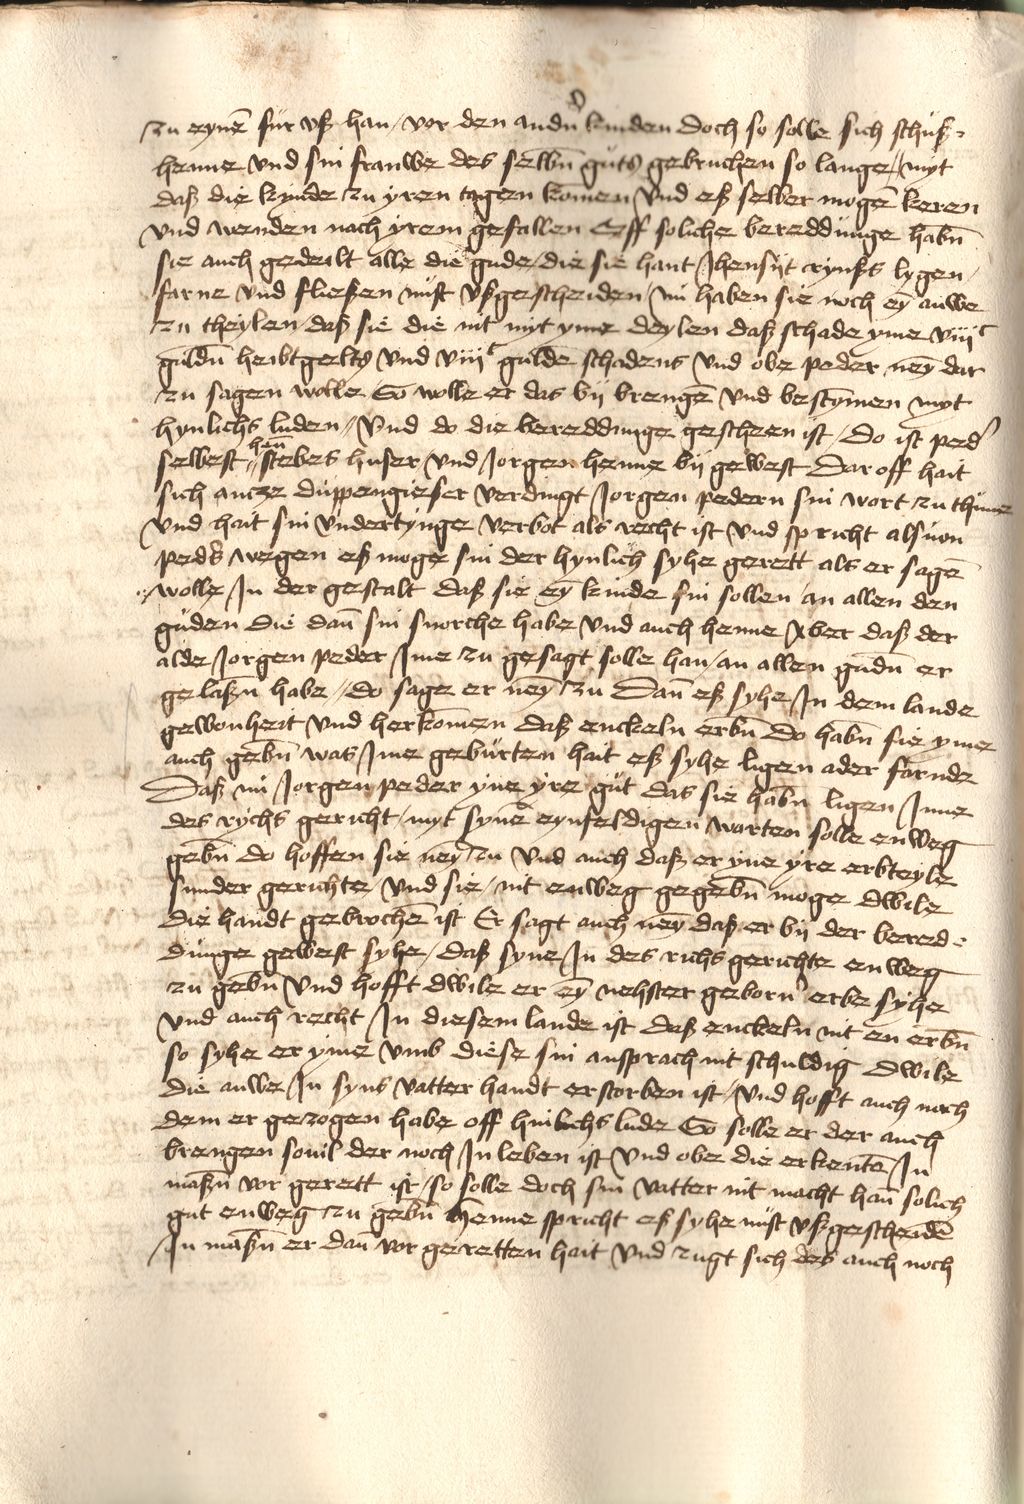 zu eynē fur uß han / vor den andn̄ kinden doch so solle sich schuß-
henne und sin frauwe des selbn̄ guts gebruchen so lange / myt
daß die kynde zu yren tagen komen und eß selber mogē keren
und wenden nach yrem gefallen Off soliche bereddunge habn̄
sie auch gedeilt alle die gude / die sie hant Jhensijt rynßs lygen /
farne und fließen nust ußgescheiden / nu haben sie noch eȳ auwe
zu theylen / daß sie die nit myt yme deylen daß schade yme viiiͨ
guldn̄ heibtgelts und viiiͨ guldē schadens und obe peder neȳ dar
zu sagen wolle So wolle er das bij brengē und bestōmen myt
hynlichs luden / Und do die bereddunge gescheen ist / do ist ped'
selbest / henn̄ stebes huser und Jorgen henne bij gewest Dar off hait
sich antze duppengießer verdingt Jorgen pedern sin wort zu thune
und hait sin undertynge verbot als recht ist und spricht als von
peds wegen eß moge sin der hynlich syhe gerett als er sagē
wolle / In der gestalt daß sie eȳ kinde sin sollen an allen den
guden die dan̄ sin snorche habe und auch henne Aber daß der
alde Jorgen peder Ime zu gesagt solle han / an allen gudn̄ er
gelaßn̄ habe / do sage er neȳ zu Dan̄ eß syhe / In dem lande
gewonheit und herkomen daß enckeln erbn̄ do habn̄ sie yme
auch gebn̄ was Ime geburten hait eß syhe ligen ader farnde
Daß nu Jorgen peder yne yre gut das sie habn̄ ligen Inne
des rychs gericht / myt synē eynfeldigen worten solle enweg
gebn̄ do hoffen sie neȳ zu und auch daß er yne yre erbteyle
sunder gerichte / und sie / nit enweg gegebn̄ moge dwile
die handt gebrochē ist Er sagt auch neȳ daß er bij der bered-
dunge gewest syhe / daß syne In des richs gerichte enweg
zu gebn̄ und hofft dwile er eȳ nehster geborn̄ erbe syhe
und auch recht In diesem lande ist daß enckeln nit en erbn̄
so syhe er yme umb diese sin ansprach nit schuldig dwile
die auwe In syns vatter handt erstorben ist / und hofft auch noch
dem er gezogen habe off hinlichs lude So solle er der auch
brengen souil der noch In leben ist und obe die erkentē In
maßn̄ vor gerett ist / so solle doch sin vatter nit macht han̄ solich
gut enweg zu gebn̄ Henne spricht eß syhe nust ußgescheidē
In maßn̄ er dan̄ vor geretten hait und zugt sich des auch noch